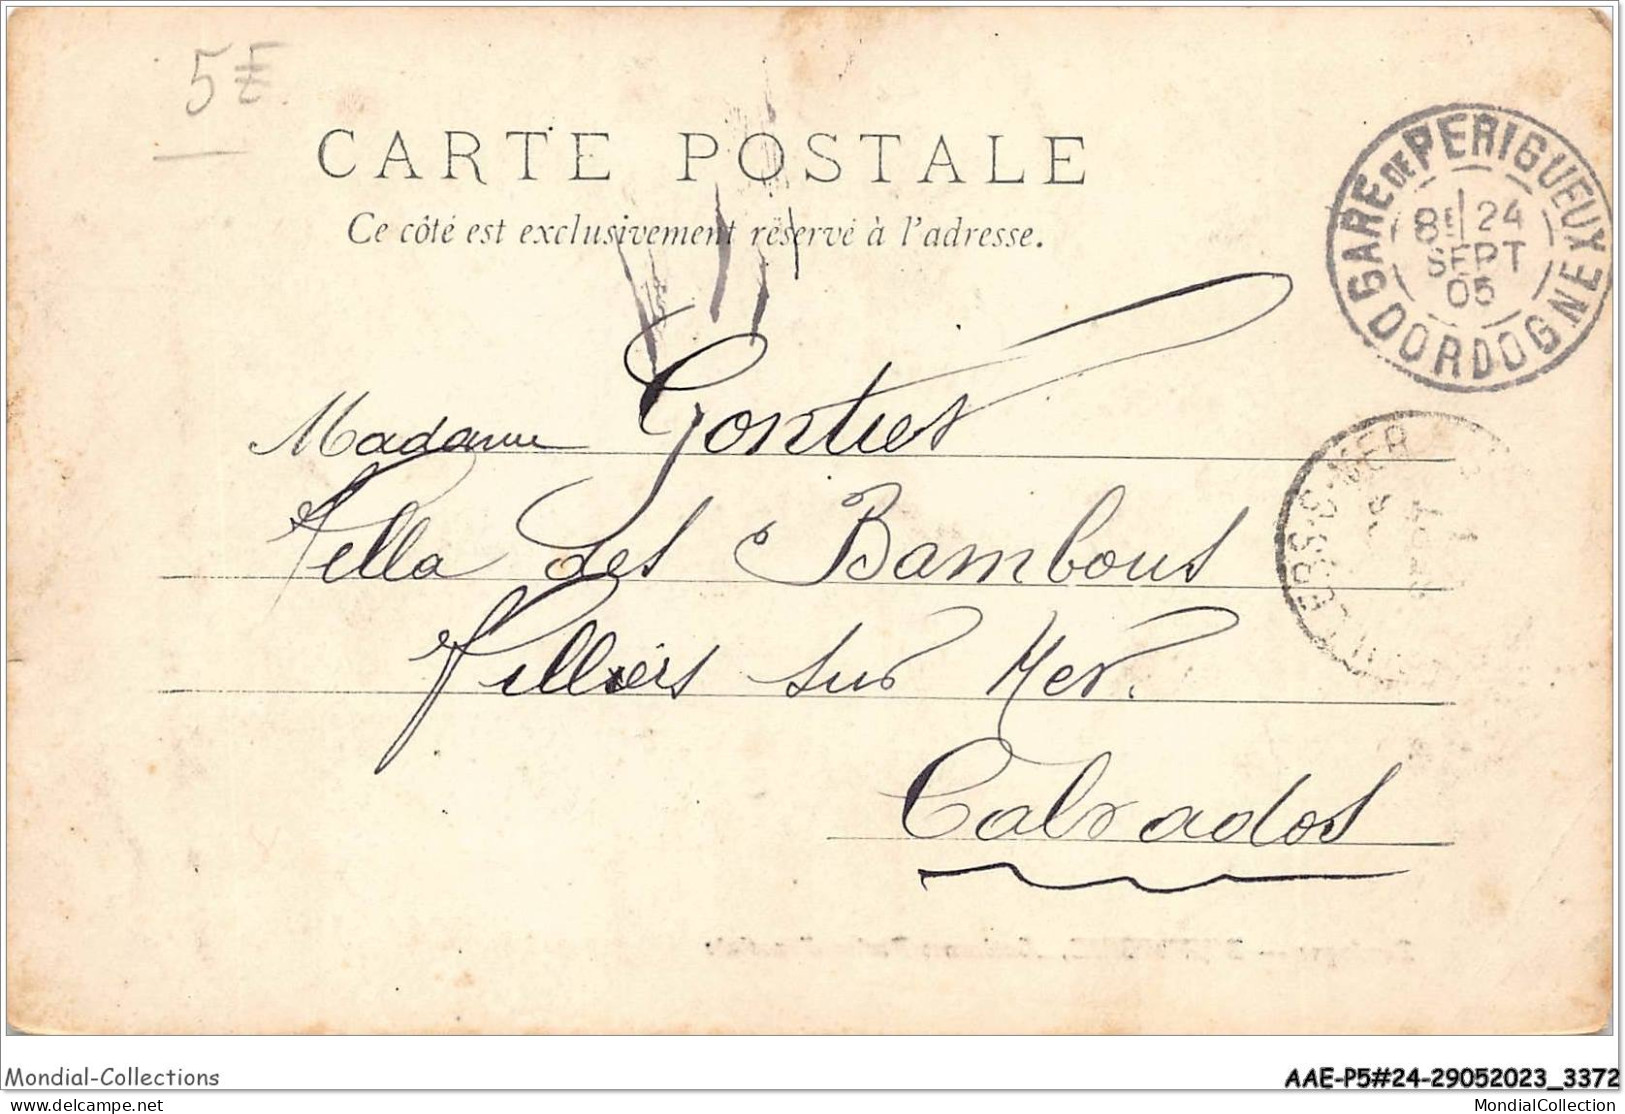 5 F
CARTE POSTALE
Ce côté est exclusivement réservé à l'adresse.
GARE DE PERIGUEUX
8E 24
SEPT
05
DORDOGNE
Madame Gontier
Villa des Bambous
Villiers sur Mer.
Calvados
S-MER
Mondial-Collections
AAE-P5#24-29052023_3372
delcampe.net
MondialCollection